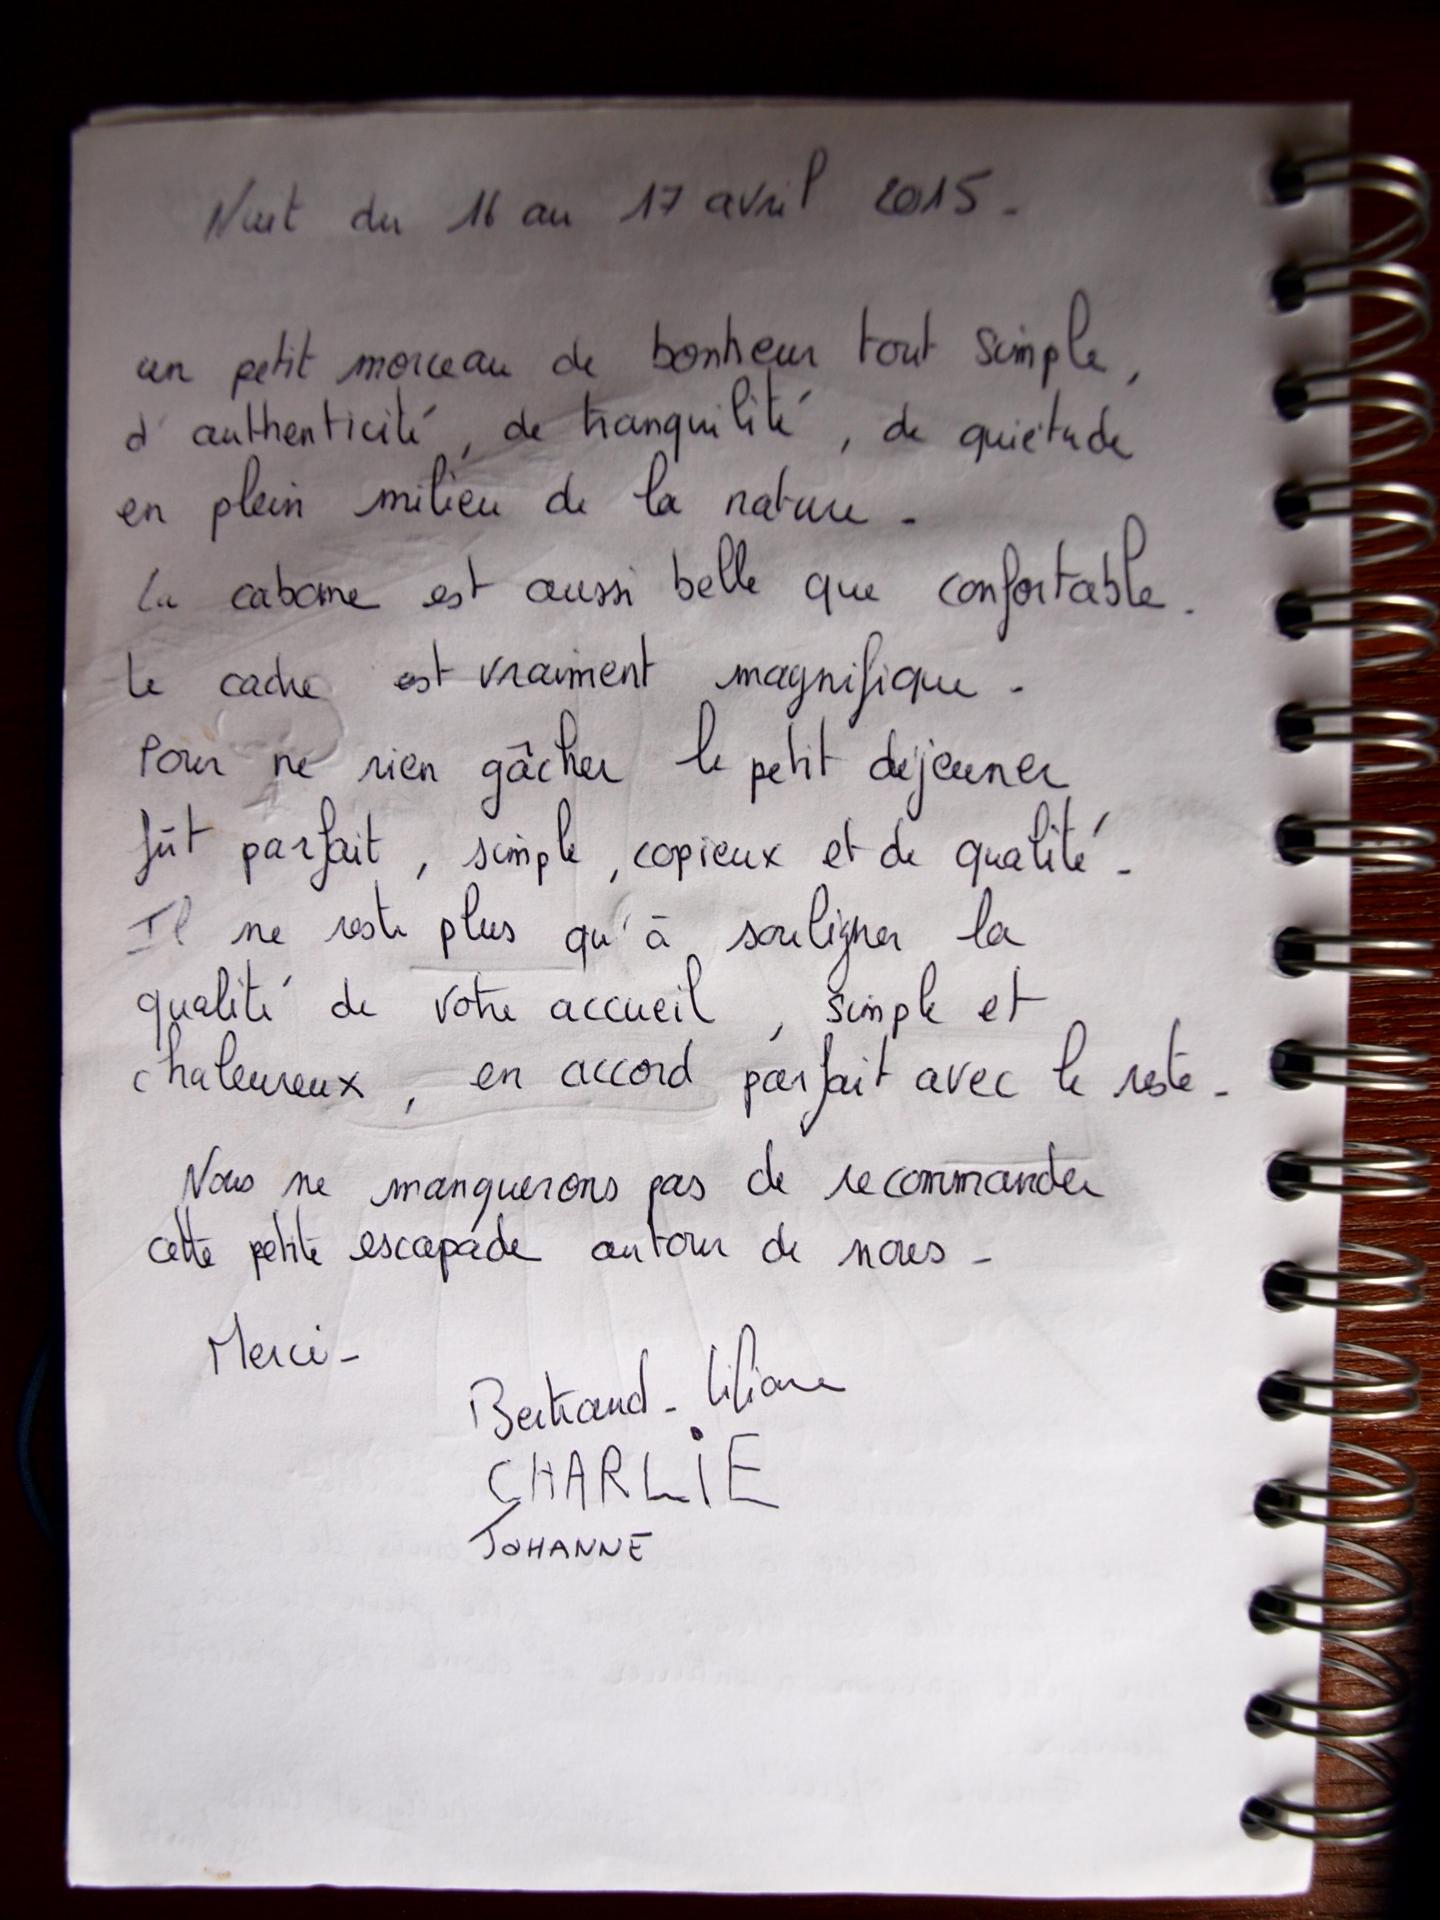 Nuit du 16 au 17 avril 2015 -
un petit morceau de bonheur tout simple,
d'authenticité, de tranquilité, de quiétude
en plein milieu de la nature -
La cabane est aussi belle que confortable.
Le cadre est vraiment magnifique -
Pour ne rien gâcher le petit déjeuner
fût parfait, simple, copieux et de qualité -
Il ne reste plus qu'à souligner la
qualité de votre accueil, simple et
chaleureux, en accord parfait avec le reste -
Nous ne manquerons pas de recommander
cette petite escapade autour de nous -
Merci -
Bertrand - Liliane
CHARLiE
JOHANNE